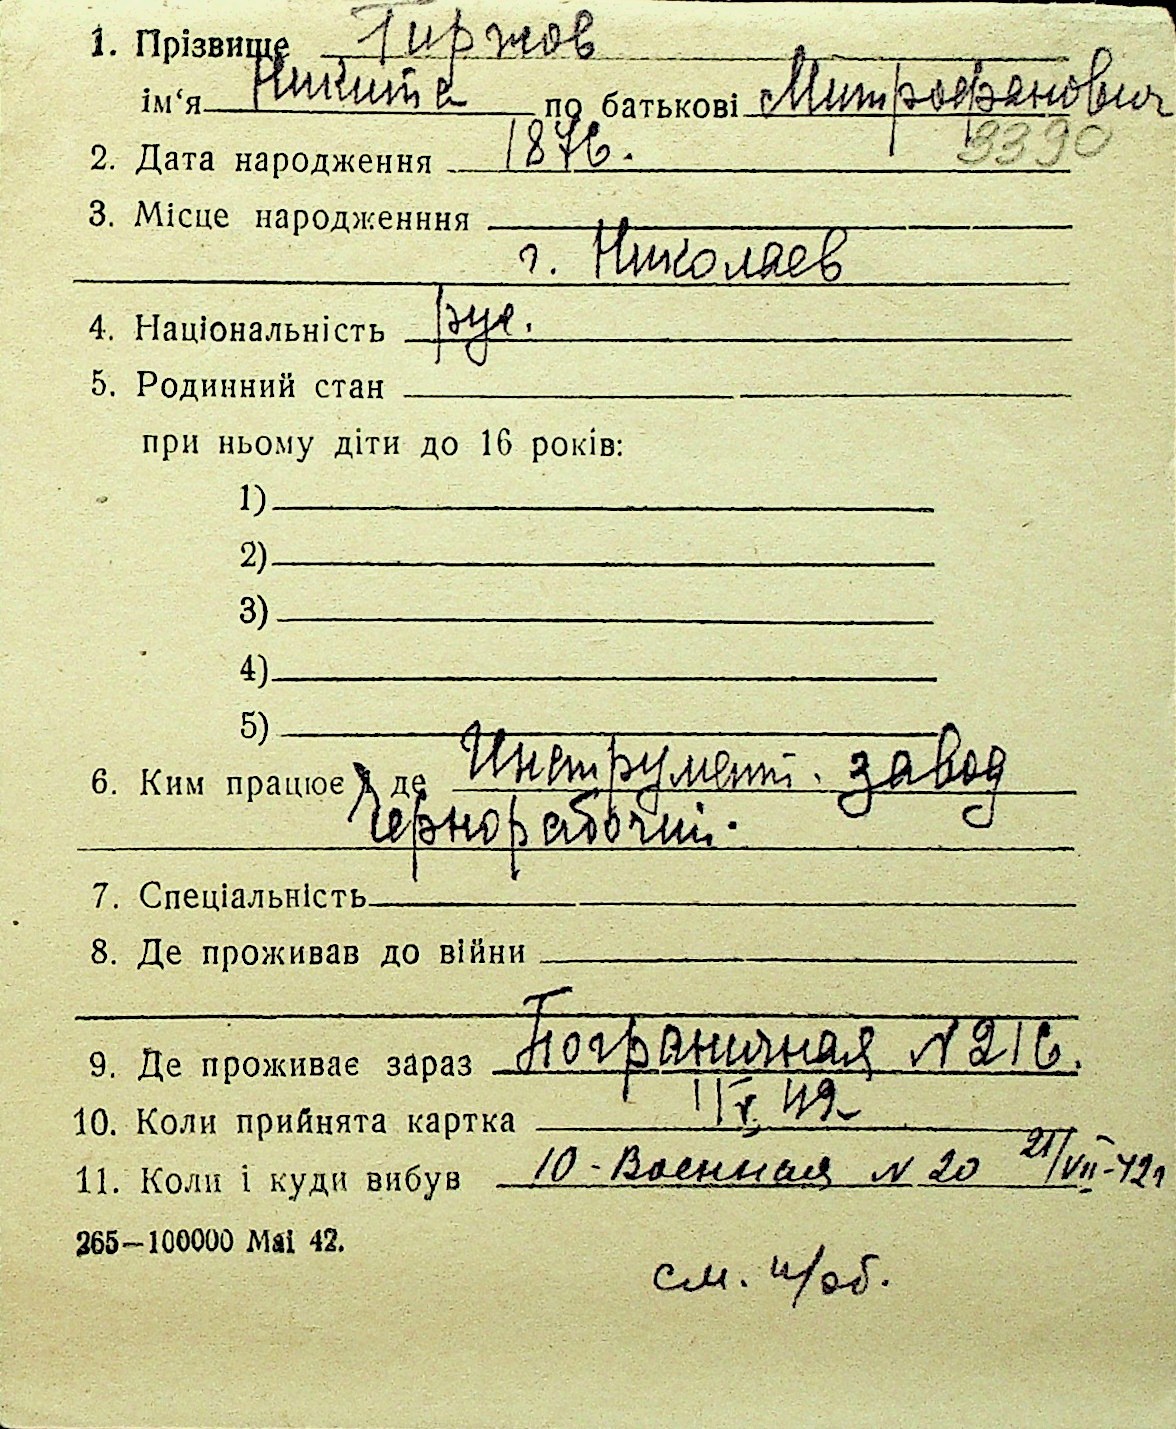 1. Прізвище Гиржов
ім‘я Никита по батькові Митрофанович
3390
2. Дата народження 1876.
3. Місце народженння
г. Николаев
4. Національність рус.
5. Родинний стан
при ньому діти до 16 років:
1)
2)
3)
4)
5)
6. Ким працює і де Инструмент. завод
Чернорабочий.
7. Спеціальність
8. Де проживав до війни
9. Де проживає зараз Пограничная № 216.
10. Коли прийнята картка
11. Коли і куди вибув 10-Военная № 20 21/VII-42г
265—100000 Маі 42.
см. н/об.